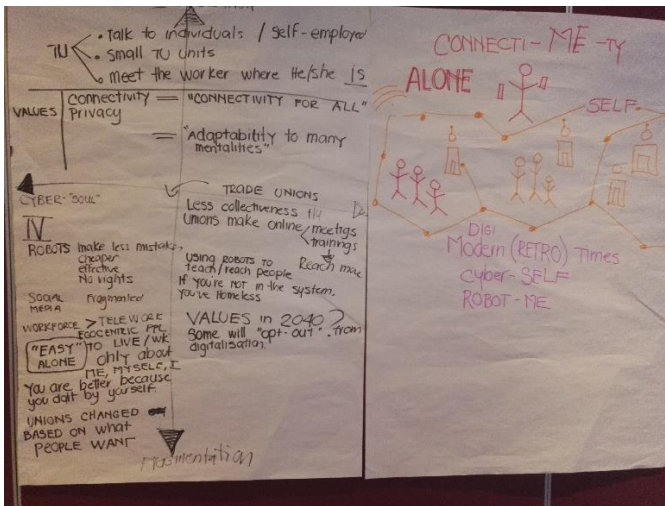 TU
• Talk to individuals / self-employed
• Small TU units
• meet the worker where He/she IS
VALUES
Connectivity = "CONNECTIVITY FOR ALL"
Privacy
= "Adaptability to many
mentalities"
CYBER-"SOUL"
IV
ROBOTS make less mistake,
cheaper
effective
No rights
SOCIAL
MEDIA
Fragmented
WORKFORCE > TELEWORK
EGOCENTRIC PPL
"EASY" TO LIVE/WK
ALONE
only about
ME, MYSELF, I
You are better because
you do it by yourself.
UNIONS CHANGED
BASED ON what
PEOPLE WANT
TRADE UNIONS
Less collectiveness
Unions make online
meetigs
trainings
Reach more
USING ROBOTS TO
teach/reach people
If you're not in the system,
You're Homeless
VALUES in 2040?
Some will "opt-out" from
digitalisation.
CONNECTI-ME-TY
ALONE
SELF
DIGI
Modern (RETRO) Times
Cyber-SELF
ROBOT-ME